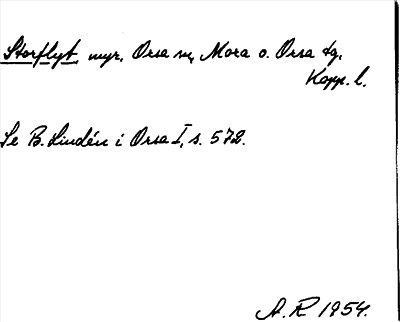 Storflyt, myr, Orsa sn, Mora o. Orsa tg,
Kopp. l.
Se B. Lindén i Orsa I, s. 572.
A. R 1954.